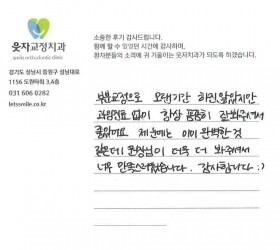 웃자교정치과
smile orthodontic clinic
경기도 성남시 중원구 성남대로
1156 도원타워 3,4층
031 606 0282
letssmile.co.kr
소중한 후기 감사드립니다.
함께 할 수 있었던 시간에 감사하며,
환자분들의 소리에 귀 기울이는 웃자치과가 되도록 하겠습니다.
부분교정으로 오랜기간 하진않았지만
과잉진료 없이 항상 꼼꼼히 잘봐주셔서
좋았어요. 제눈에는 이미 완벽한 것
같은데 원장님이 더욱 더 봐주셔서
너무 만족스러웠습니다. 감사합니다 :)